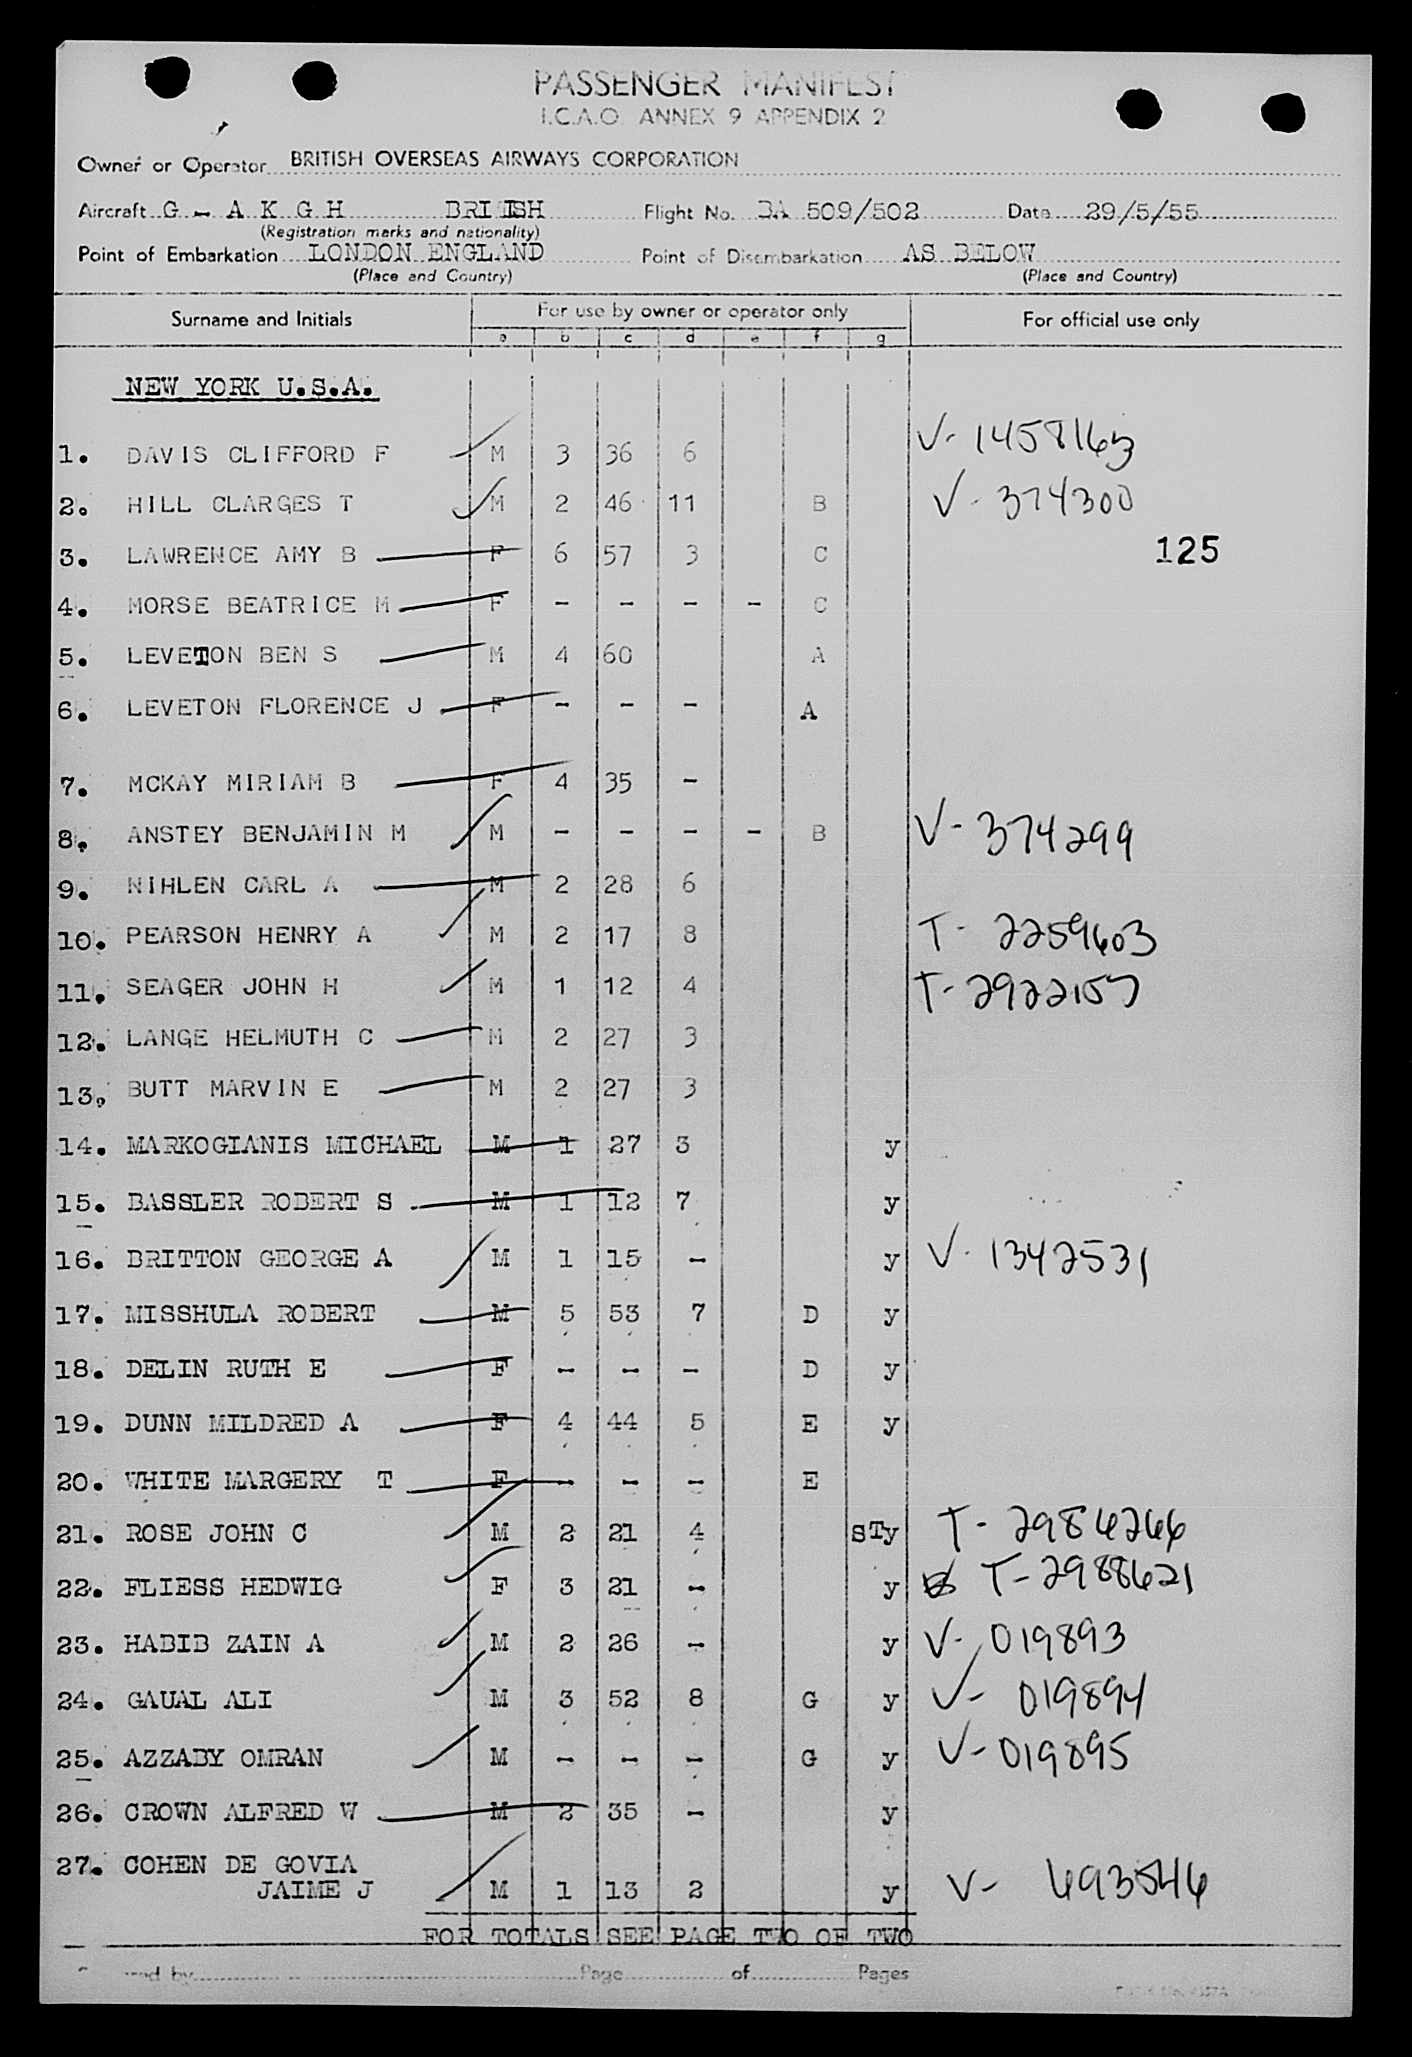 PASSENGER MANIFEST
I.C.A.O. ANNEX 9 APPENDIX 2
Owner or Operator BRITISH OVERSEAS AIRWAYS CORPORATION
Aircraft G - A K G H BRITISH Flight No. BA 509/502 Date 29/5/55
(Registration marks and nationality)
Point of Embarkation LONDON ENGLAND Point of Disembarkation AS BELOW
(Place and Country) (Place and Country)
Surname and Initials For use by owner or operator only For official use only
a b c d e f g
NEW YORK U.S.A.
1. DAVIS CLIFFORD F M 3 36 6 V-1458163
2. HILL CLARGES T M 2 46 11 B V-374300
125
3. LAWRENCE AMY B F 6 57 3 C
4. MORSE BEATRICE M F - - - - C
5. LEVETON BEN S M 4 60 A
6. LEVETON FLORENCE J F - - - A
7. MCKAY MIRIAM B F 4 35 -
8. ANSTEY BENJAMIN M M - - - - B V-374299
9. NIHLEN CARL A M 2 28 6
10. PEARSON HENRY A M 2 17 8 T-2259603
11. SEAGER JOHN H M 1 12 4 T-2922157
12. LANGE HELMUTH C M 2 27 3
13. BUTT MARVIN E M 2 27 3
14. MARKOGIANIS MICHAEL M 1 27 3 y
15. BASSLER ROBERT S M 1 12 7 y
16. BRITTON GEORGE A M 1 15 - y V-1342531
17. MISSHULA ROBERT M 5 53 7 D y
18. DELIN RUTH E F - - - D y
19. DUNN MILDRED A F 4 44 5 E y
20. WHITE MARGERY T F - - - E
21. ROSE JOHN C M 2 21 4 STy T-2984266
22. FLIESS HEDWIG F 3 21 - y T-2988621
23. HABIB ZAIN A M 2 26 - y V-019893
24. GAUAL ALI M 3 52 8 G y V-019894
25. AZZABY OMRAN M - - - G y V-019895
26. CROWN ALFRED W M 2 35 - y
27. COHEN DE GOVIA
JAIME J M 1 13 2 y V-693546
FOR TOTALS SEE PAGE TWO OF TWO
by Page of Pages